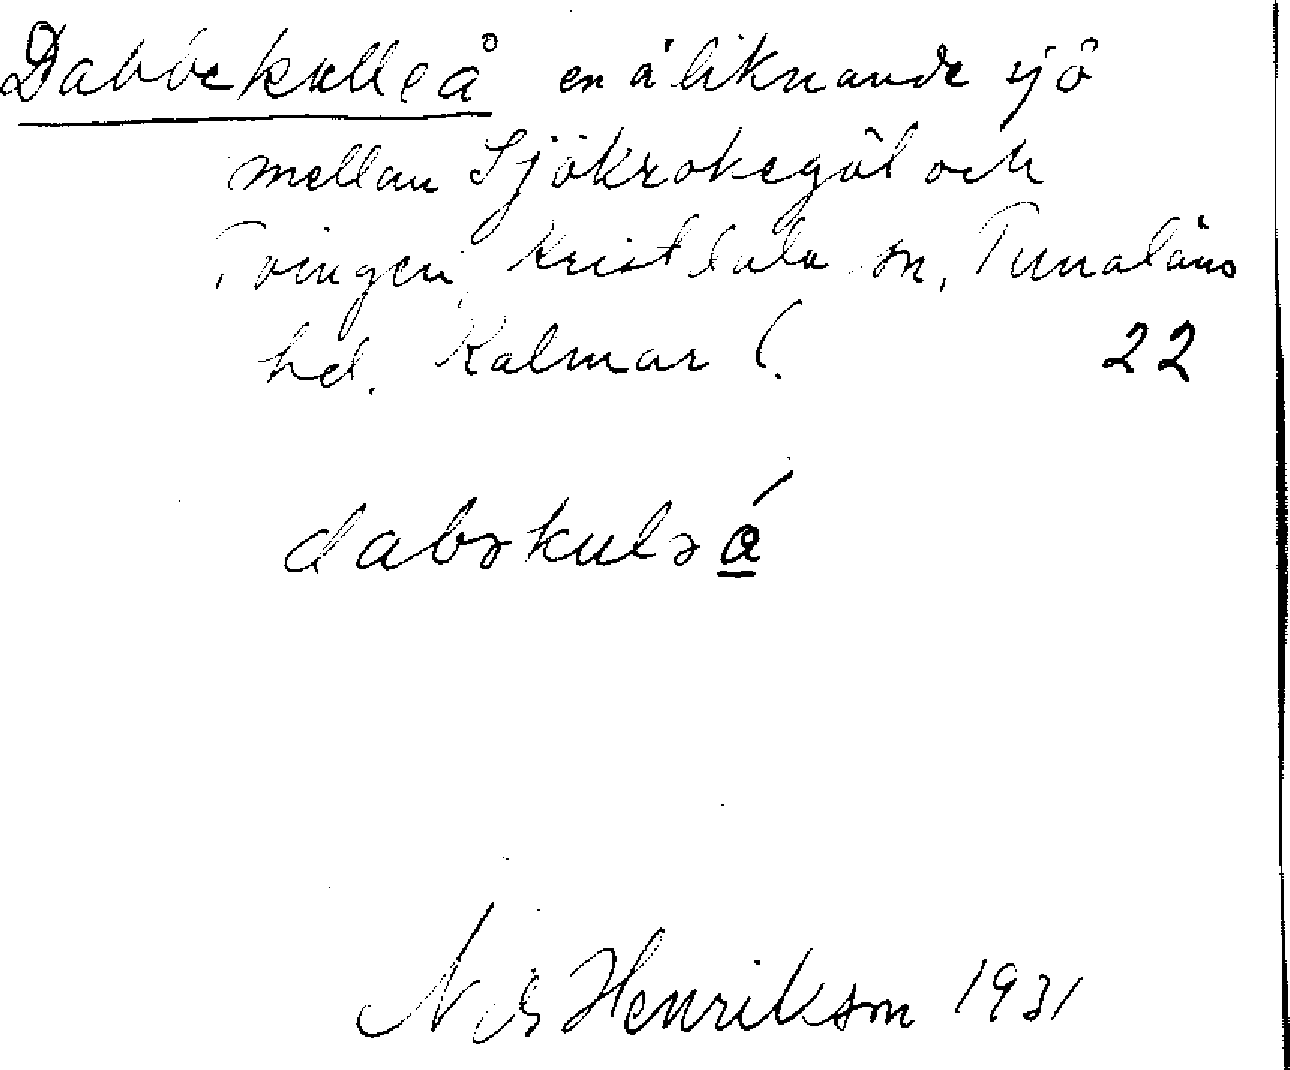 Dabbekulleå en åliknande sjö
mellan Sjökrokegöl och
Tvingen, Kristdala sn, Tunaläns
hd. Kalmar l. 22
dabəkulə á
Nils Henrikson 1931